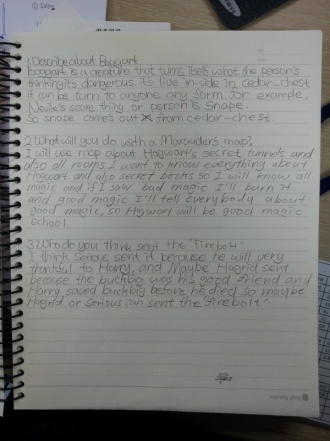 1. Describe about Boggart
Boggart is a creature that turns itself what the person's
thinking it's dangerous. it's live in-side in cedar-chest
it can be turn to anyone any form. for example.
Nevile's score thing or person is Snape.
So snape come's out from cedar-chest.
2. What will you do with a Marauders map?
I will use map about Hogwart's secret tunnels and
also all rooms I want to know everything about
Hogwart and also secret books so I will know all
magic and if I saw bad magic I'll burn it
and good magic I'll tell everybody about
good magic, so Hogwart will be good magic
school.
3. Who do you think sent the "firebolt"
I think Serious sent it because he will very
to Harry, and Maybe Hagrid sent
because the buckbig was his good friend and
Harry saved buckbig before he died so maybe
Hagrid or Serious can sent the "firebolt".